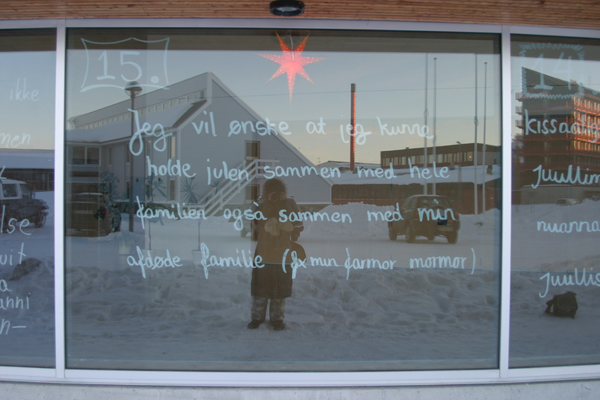 ikke
men
lse
uit
a
anni
n-
15.
Jeg vil ønske at jeg kunne
holde julen sammen med hele
familien også sammen med min
afdøde familie (fx min farmor mormor)
14
Juullim
nuanna
Juullis